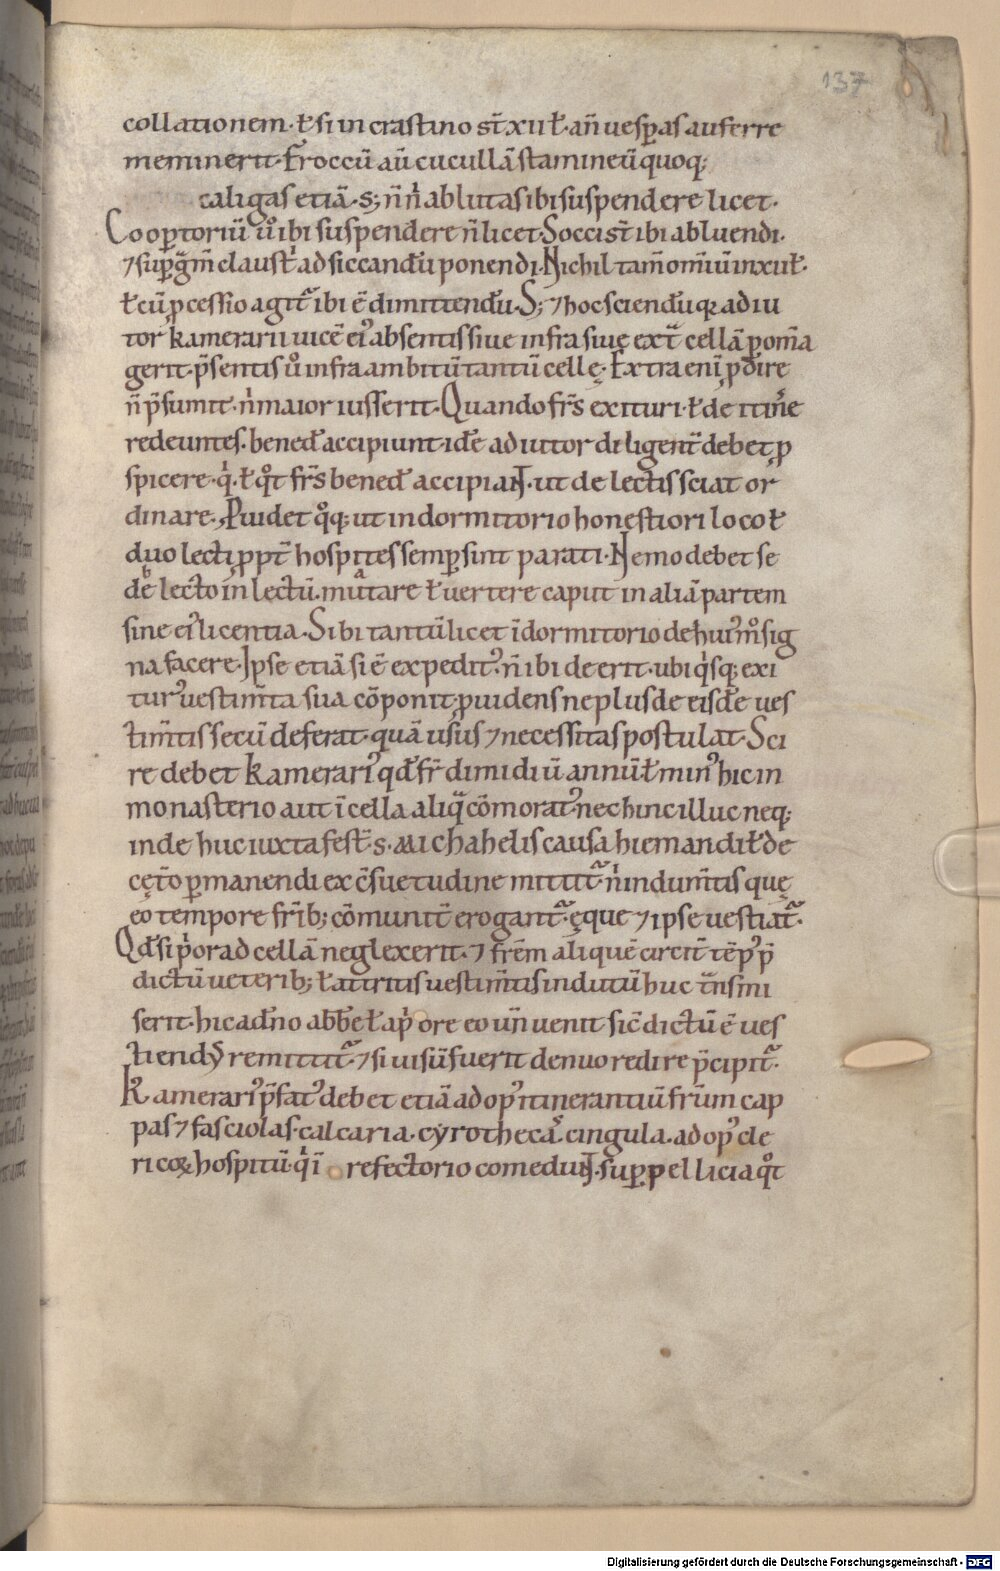 137
collationem· ł si in crastino st̄ xii ł· an̄ uesꝑas auferre
meminerit· Froccū aū cucullā stamineū quoq;
caligas etiā· s; n̄ nͥ abluta sibi suspendere licet·
Cooꝑtoriū uͦ ibi suspendere n̄ licet· Socci st̄ ibi abluendi·
⁊ suꝑ gͣm̄ claust̄ͥ ad siccandū ponendi· Nichil tam̄ om̄iū in xii ł·
ł cū ꝓcessio agitᷓ ibi ē dimittendū· S; ⁊ hoc sciendū quia adiu
tor kamerarii uicē eiꝰ absentis siue infra siue extᷓ cellā ꝑ om̄ia
gerit· p̄sentis uͦ infra ambitū tantū cellę· Extra eni ꝓdire
n̄ p̄sumit· nͥ maior iusserit· Quando fr̄s exituri· ł de itin̄e
redeuntes· bened̄ accipiunt· idē adiutor diligent̄ debet ꝓ
spicere· qͥ· ł qͦt fr̄s bened̄ accipiant· ut de lectis sciat or
dinare· Ꝓuidet qͦq; ut in dormitorio honestiori loco ł
duo lecti ꝓpt̄ hospites semꝑ sint parati· Nemo debet se
de lecto in lectū· mutare ł uertere caput in aliā partem
sine eiꝰ licentia· Sibi tantū licet ī dormitorio dehuiꝰmͦ sig
na facere· Ipse etiā si ē expeditꝰ· n̄ ibi deerit· ubi qͥsq; exi
turꝰ uestim̄ta sua cōponit· ꝓuidens ne plus de eisdē ues
tim̄tis secū deferat· quā usus ⁊ necessitas postulat· Sci
re debet kamerariꝰ qd̄ fr̄ dimidiū annū ł minꝰ hic in
monasterio aut ī cella aliqᷓ cōmoratꝰ nec hinc illuc neq;
inde huc iuxta fest̄ s· michahelis causa hiemandi ł de
cęt̄o ꝑmanendi ex c̄suetudine mittitᷓ· nͥ indum̄tis quę
eo tempore fr̄ib; cōmunit̄ erogantᷓ· ęque ⁊ ipse uestiatᷓ·
Qd̄ si pͥor ad cellā neglexerit· ⁊ frēm aliquē circit̄ tēpꝰ p̄
dictū ueterib; ł attritis uestim̄tis indutū huc tᷓnsmi
serit· hic a dn̄o abb̄e ł a pͥore eo un̄ uenit sic̄ dictū ē ues
tiendꝰ remittitᷓ· ⁊ si uisū fuerit denuo redire p̄cipitᷓ·
Kamerariꝰ p̄fatꝰ debet etiā ad opꝰ itinerantiū fr̄um cap
pas ⁊ fasciolas· calcaria· cyrothecas· cingula· ad opꝰ cle
ricoꝝ hospitū· qͥ ī refectorio comedunt· suꝑpellicia qͦt
Digitalisierung gefördert durch die Deutsche Forschungsgemeinschaft - DFG